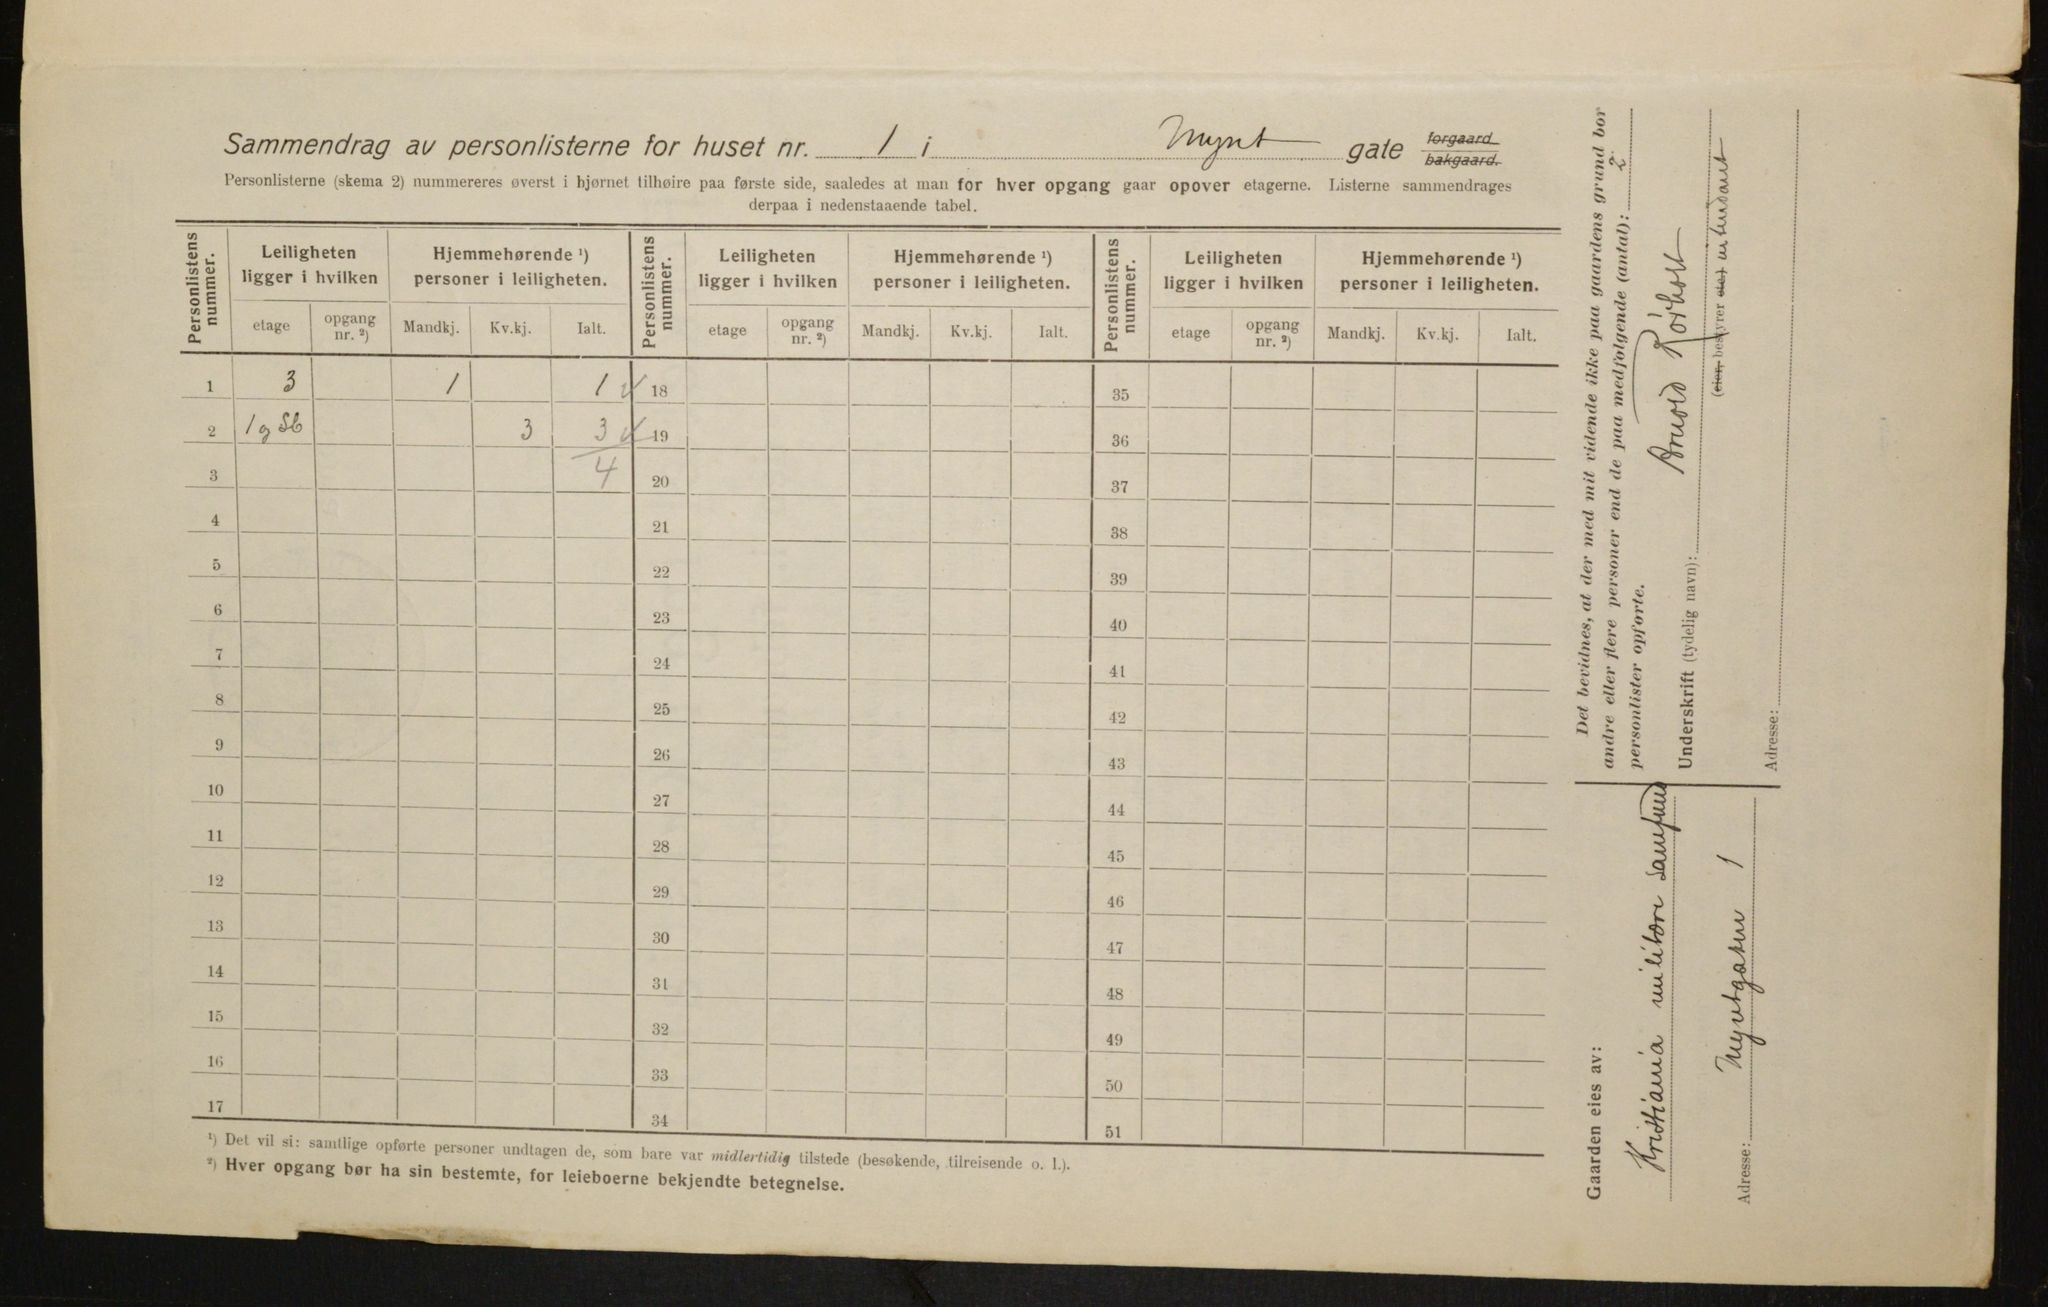 Sammendrag av personlisterne for huset nr. 1 i Mynt gate forgaard bakgaard.
Personlisterne (skema 2) nummereres øverst i hjørnet tilhøire paa første side, saaledes at man for hver opgang gaar opover etagerne. Listerne sammendrages
derpaa i nedenstaaende tabel.
Personlistens nummer. Leiligheten ligger i hvilken Hjemmehørende ¹) personer i leiligheten. Personlistens nummer. Leiligheten ligger i hvilken Hjemmehørende ¹) personer i leiligheten. Personlistens nummer. Leiligheten ligger i hvilken Hjemmehørende ¹) personer i leiligheten.
etage opgang nr. ²) Mandkj. Kv.kj. Ialt. etage opgang nr. ²) Mandkj. Kv.kj. Ialt. etage opgang nr. ²) Mandkj. Kv.kj. Ialt.
1 3 1 1 18 35
2 1 og St 3 3 19 36
3 4 20 37
4 21 38
5 22 39
6 23 40
7 24 41
8 25 42
9 26 43
10 27 44
11 28 45
12 29 46
13 30 47
14 31 48
15 32 49
16 33 50
17 34 51
¹) Det vil si: samtlige opførte personer undtagen de, som bare var midlertidig tilstede (besøkende, tilreisende o. l.).
²) Hver opgang bør ha sin bestemte, for leieboerne bekjendte betegnelse.
Det bevidnes, at der med mit vidende ikke paa gaardens grund bor
andre eller flere personer end de paa medfølgende (antal): 2
personlister opførte.
Underskrift (tydelig navn):
(eier, bestyrer eler intendant
Adresse:
Gaarden eies av:
Kristiania militære Samfund
Adresse: Myntgaten 1